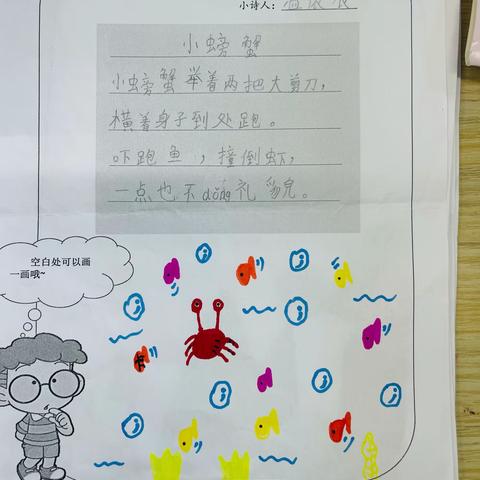 小诗人：
小螃蟹
小螃蟹举着两把大剪刀，
横着身子到处跑。
吓跑鱼，撞倒虾，
一点也不dǒng礼貌。
空白处可以画
一画哦~